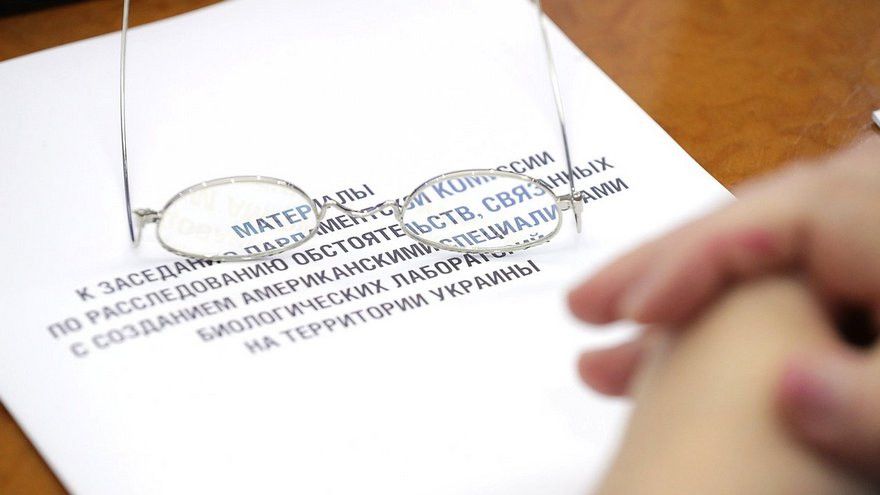 МАТЕРИАЛЫ
К ЗАСЕДАНИЮ ПАРЛАМЕНТСКОЙ КОМИССИИ
ПО РАССЛЕДОВАНИЮ ОБСТОЯТЕЛЬСТВ, СВЯЗАННЫХ
С СОЗДАНИЕМ АМЕРИКАНСКИМИ СПЕЦИАЛИСТАМИ
БИОЛОГИЧЕСКИХ ЛАБОРАТОРИЙ
НА ТЕРРИТОРИИ УКРАИНЫ